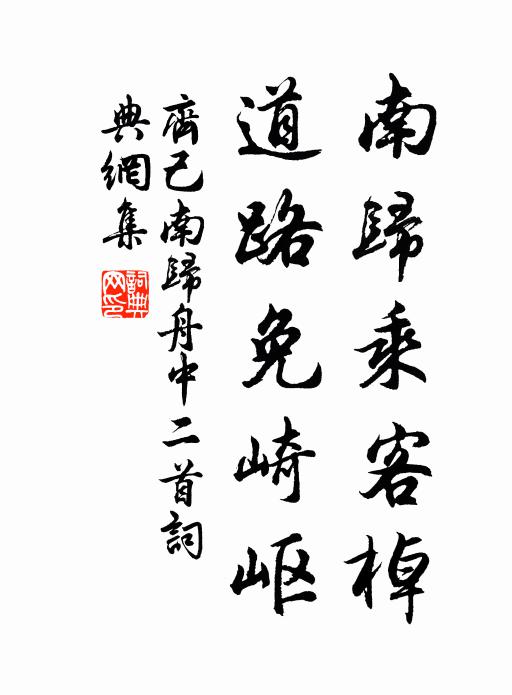 南歸乘客棹
道路免崎岖
齊己南歸舟中二首詞
典網集
詞典網印